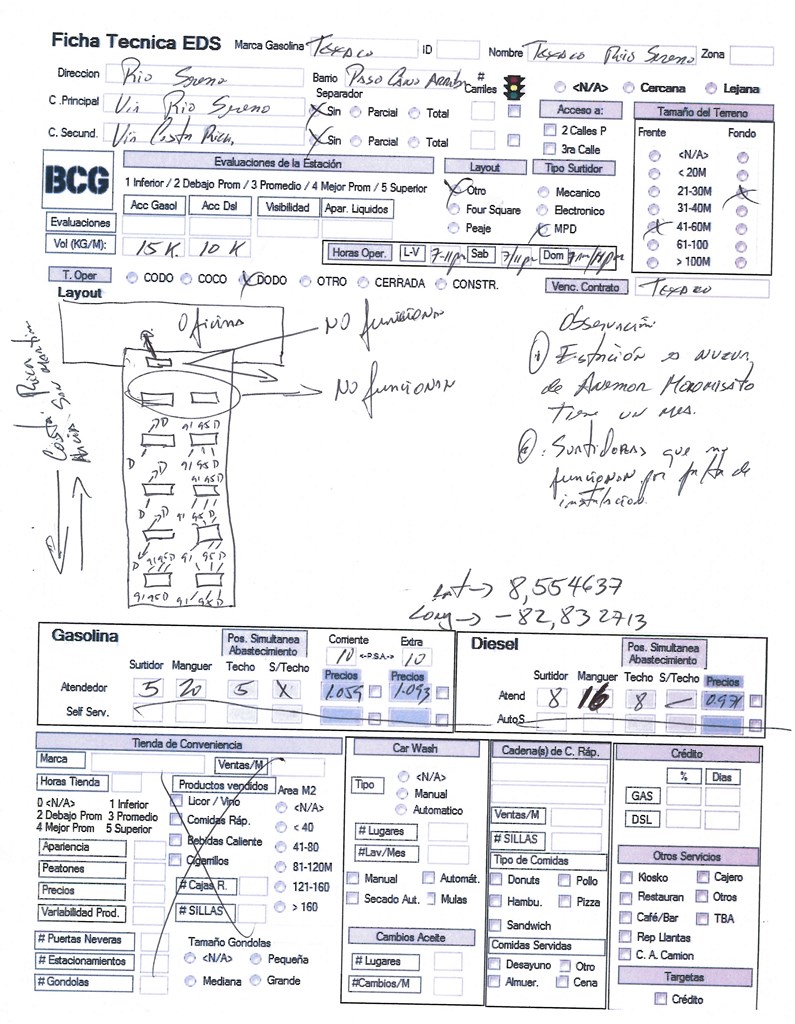 Ficha Tecnica EDS Marca Gasolina Texaco ID Nombre Texaco Rio Sereno Zona
Direccion Rio Sereno Barrio Paso Cano Arriba # Carriles <N/A> Cercana Lejana
C .Principal Via Rio Sereno Separador Sin Parcial Total Acceso a: Tamaño del Terreno
C. Secund. Via Costa Rica. Sin Parcial Total 2 Calles P Frente Fondo
3ra Calle <N/A>
BCG Evaluaciones de la Estación Layout Tipo Surtidor < 20M
1 Inferior / 2 Debajo Prom / 3 Promedio / 4 Mejor Prom / 5 Superior Otro Mecanico 21-30M
Acc Gasol Acc Dsl Visibilidad Apar. Liquidos Four Square Electronico 31-40M
Evaluaciones Peaje MPD 41-60M
Vol (KG/M): 15 K. 10 K Horas Oper. L-V 7-11pm Sab 7/11pm Dom 61-100
> 100M
T. Oper CODO COCO DODO OTRO CERRADA CONSTR. Venc. Contrato Texaco
Layout
Oficina
NO funcionan
NO funcionan
Costa Rica
Observación:
(1) Estación es nueva
de
Tiene un mes.
Surtidoras que no
funcionan por falta de
instalacion.
D 91 95 D
D 91 95 D
D 91 95 D
91 95 D 91 95 D
Lat → 8,554637
Long → -82,832713
Gasolina Pos. Simultanea Abastecimiento Corriente Extra Diesel Pos. Simultanea Abastecimiento
10 <-P.S.A-> 10
Surtidor Manguer Techo S/Techo Precios Precios Surtidor Manguer Techo S/Techo Precios
Atendedor 5 20 5 X 1.059 1.093 Atend 8 16 8 — 0.971
Self Serv. AutoS
Tienda de Conveniencia Car Wash Cadena(s) de C. Ráp. Crédito
Marca Ventas/M
Horas Tienda Productos vendidos Area M2 Tipo <N/A> % Dias
0 <N/A> 1 Inferior Licor / Vino <N/A> Manual GAS
2 Debajo Prom 3 Promedio Comidas Ráp. < 40 Automatico Ventas/M DSL
4 Mejor Prom 5 Superior Bebidas Caliente 41-80 # Lugares # SILLAS
Apariencia Cigarrillos 81-120M #Lav/Mes Tipo de Comidas Otros Servicios
Peatones # Cajas R. 121-160 Manual Automát. Donuts Pollo Kiosko Cajero
Precios # SILLAS > 160 Secado Aut. Mulas Hambu. Pizza Restauran Otros
Variabilidad Prod. Sandwich Café/Bar TBA
# Puertas Neveras Tamaño Gondolas Cambios Aceite Comidas Servidas Rep Llantas
# Estacionamientos <N/A> Pequeña # Lugares Desayuno Otro C. A. Camion
# Gondolas Mediana Grande #Cambios/M Almuer. Cena Targetas
Crédito